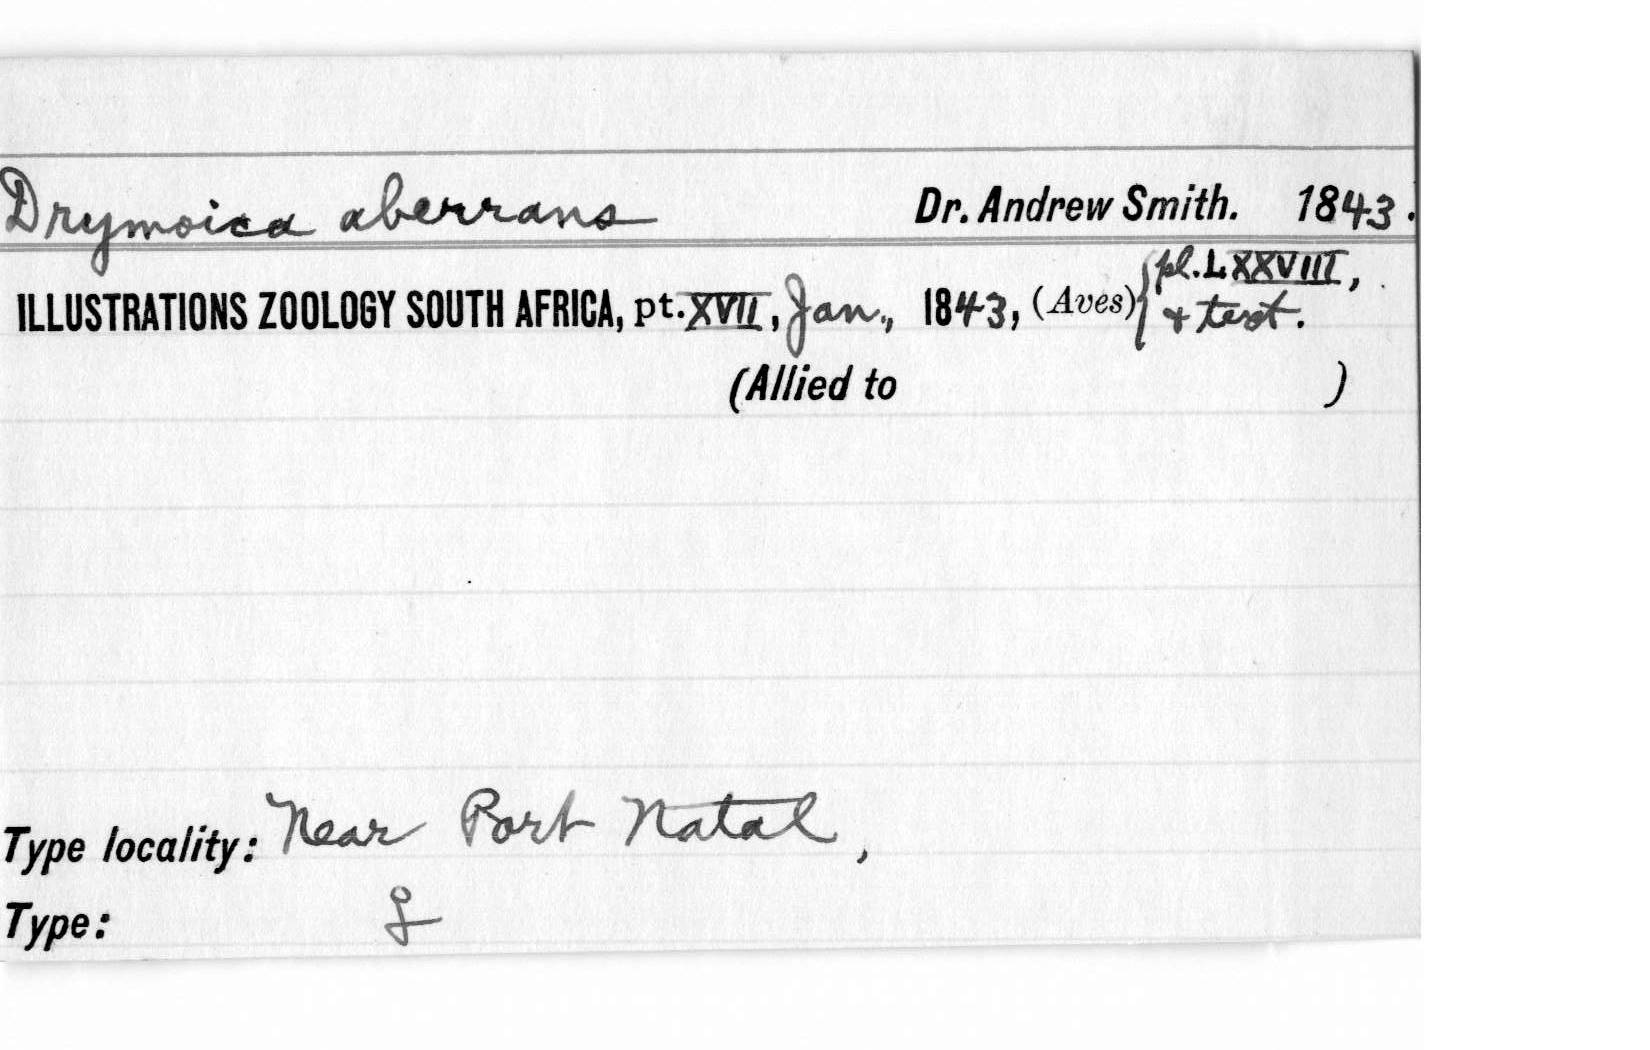 Drymoica aberrans Dr. Andrew Smith. 1843.
ILLUSTRATIONS ZOOLOGY SOUTH AFRICA, pt. XVII, Jan., 1843, (Aves) { pl. LXXVIII, & text.
(Allied to )
Type locality: Near Port Natal,
Type: ♀